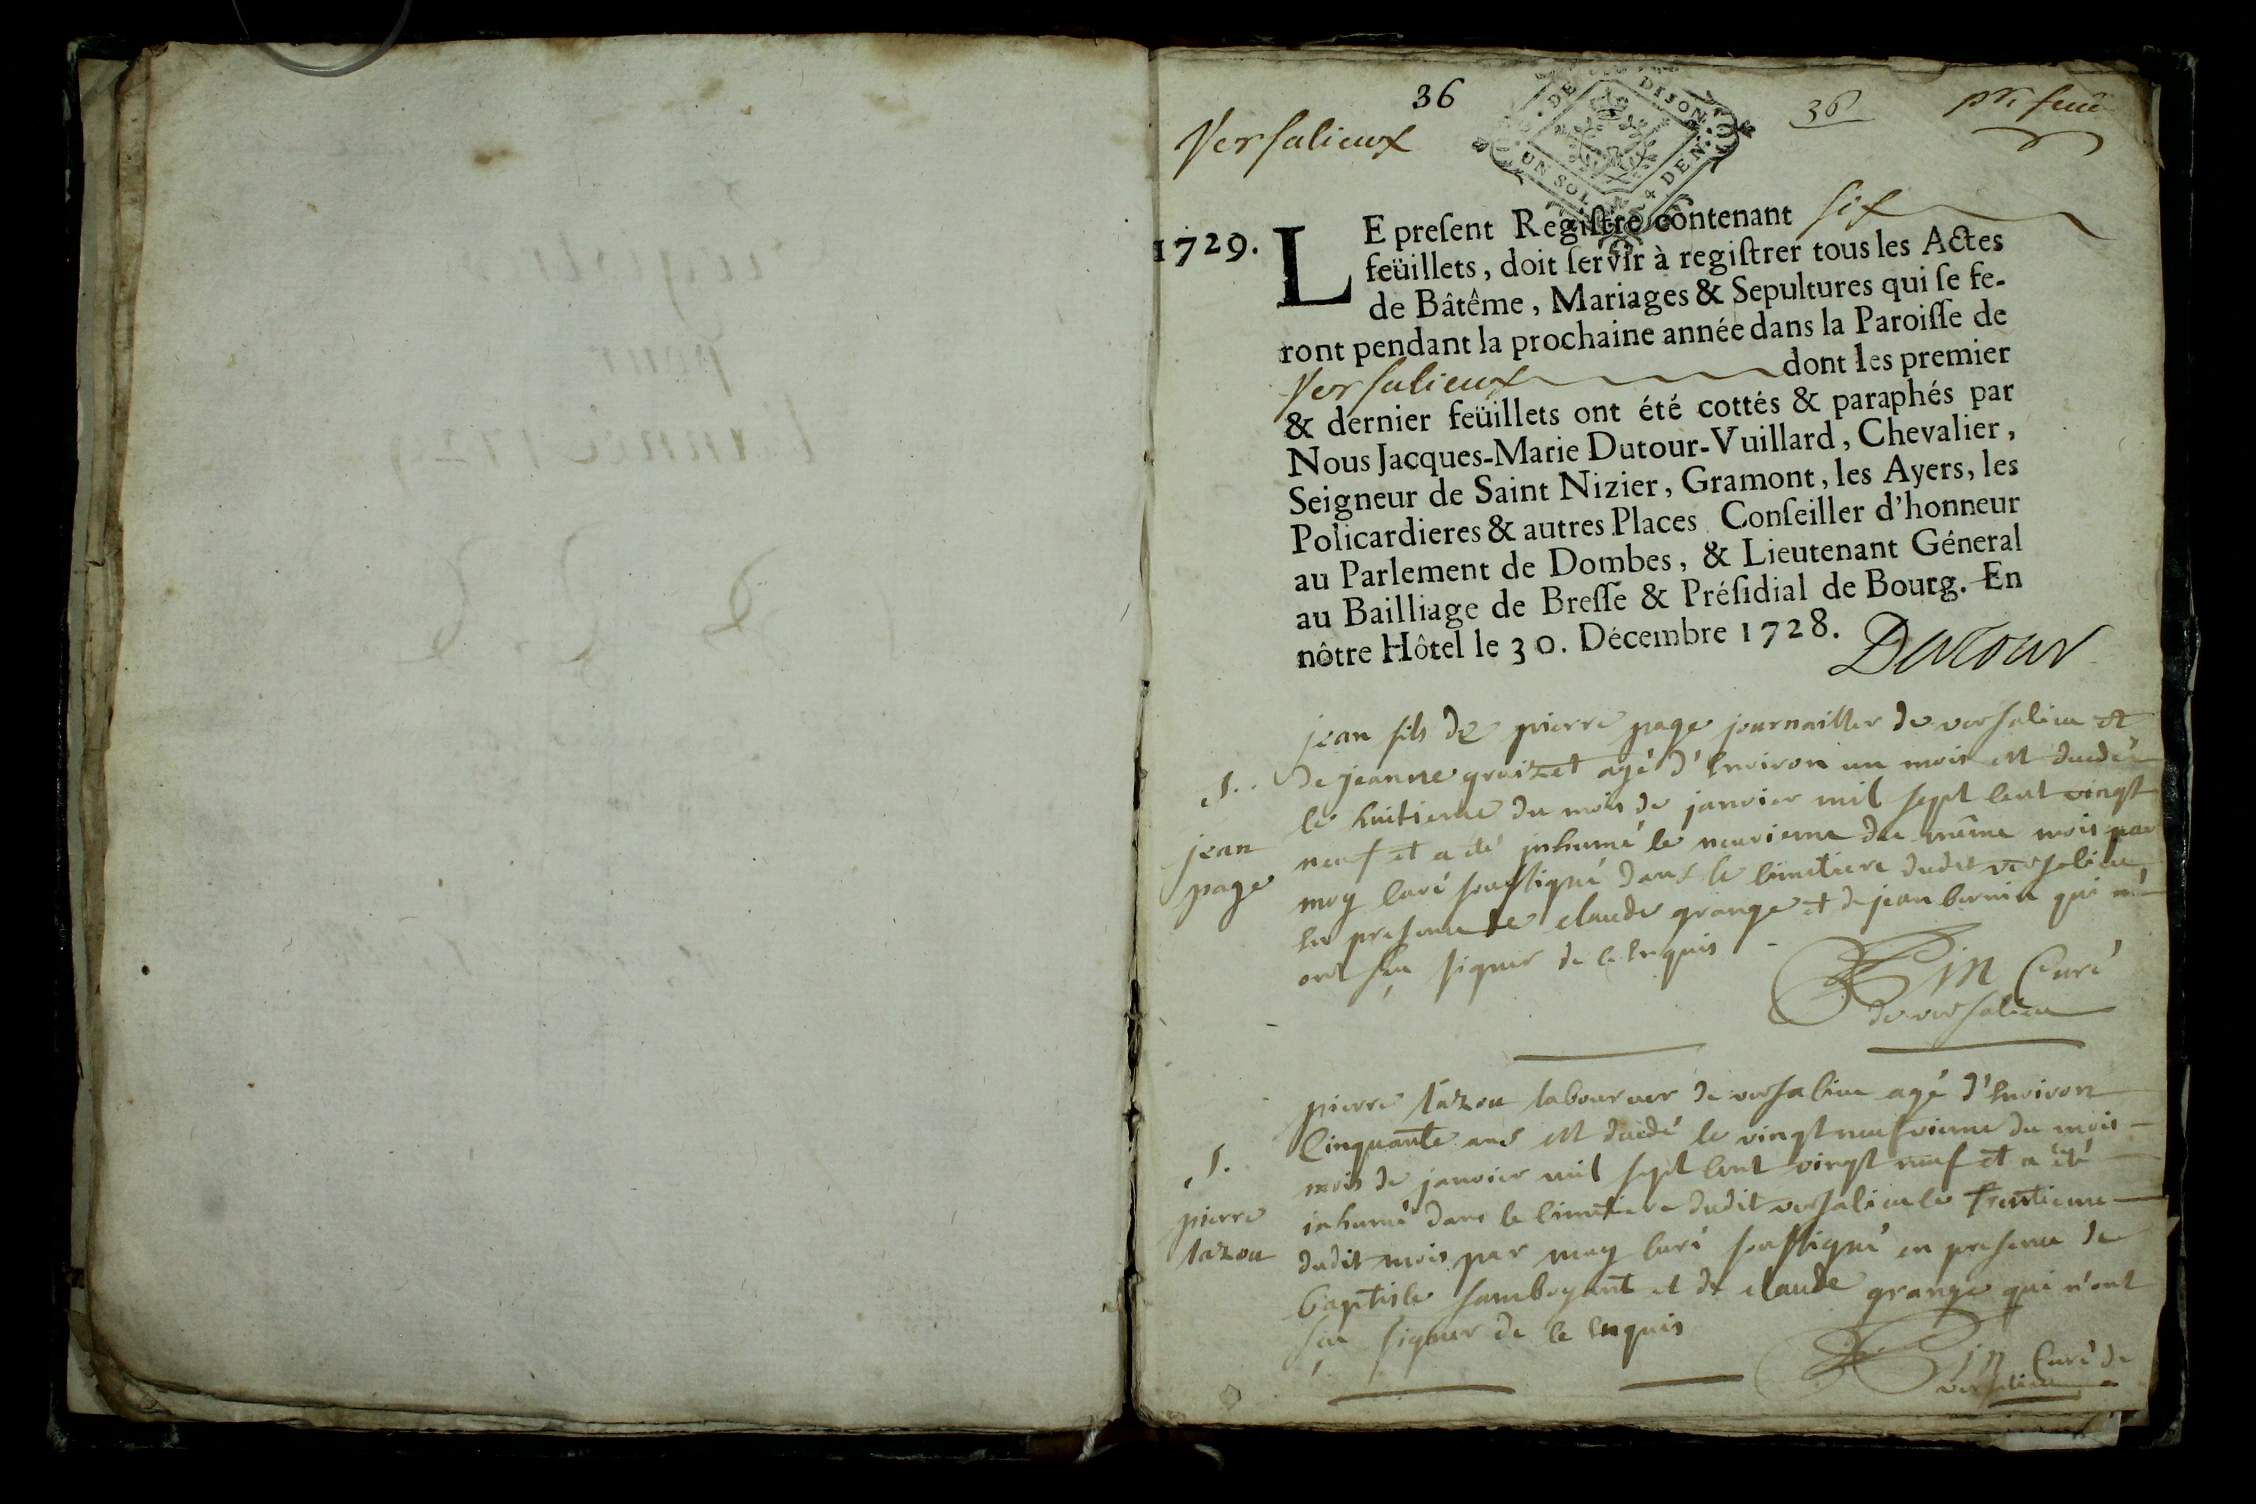 36
36
Versalieux
DE DIJON.
UN SOL 4 DEN.
1729.
LE preſent Regiſtre contenant six
feüillets, doit ſervir à regiſtrer tous les Actes
de Bâtême, Mariages & Sepultures qui ſe fe-
ront pendant la prochaine année dans la Paroiſſe de
Versalieux dont les premier
& dernier feüillets ont été cottés & paraphés par
Nous Jacques-Marie Dutour-Vuillard, Chevalier,
Seigneur de Saint Nizier, Gramont, les Ayers, les
Policardieres & autres Places Conſeiller d'honneur
au Parlement de Dombes, & Lieutenant Géneral
au Bailliage de Breſſe & Préſidial de Bourg. En
nôtre Hôtel le 30. Décembre 1728.
Dutour
S.
jean
page
jean fils de pierre page journaillier de versalieu et
de jeanne agé d'environ un mois est decedé
le huitieme du mois de janvier mil sept cent vingt
neuf et a eté inhumé le neuvieme du même mois par
moy curé soussigné dans le cimetiere dudit versalieu
en presence de claude grange et de jean qui n'
ont sçu signer de ce enquis
curé
de versalieu
S.
pierre
lazou
pierre lazou laboureur de versalieu agé d'environ
cinquante ans est decedé le vingt neufvieme du mois
mois de janvier mil sept cent vingt neuf et a eté
inhumé dans le cimetiere dudit versalieu le trentieme
dudit mois par moy curé soussigné en presence de
baptiste et de claude grange qui n'ont
sçu signer de ce enquis
curé de
versalieu